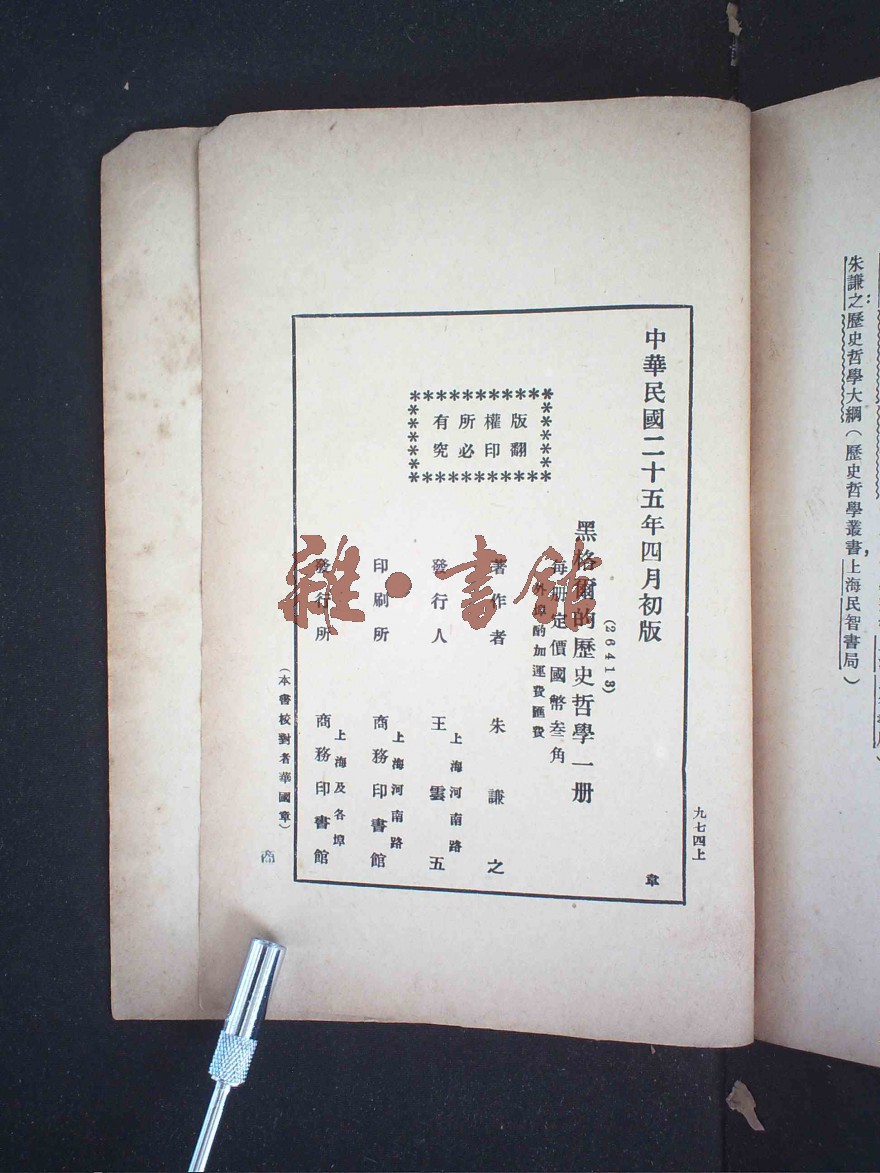 朱謙之歷史哲學大綱（歷史哲學叢書，上海民智書局）
九七四上
中華民國二十五年四月初版
章
(26413)
黑格爾的歷史哲學一册
每册定價國幣叁角
外埠酌加運費匯費
版權所有
翻印必究
著作者 朱謙之
發行人 王雲五
上海河南路
印刷所 商務印書館
上海河南路
發行所 商務印書館
上海及各埠
（本書校對者華國章）
商
雜·書館